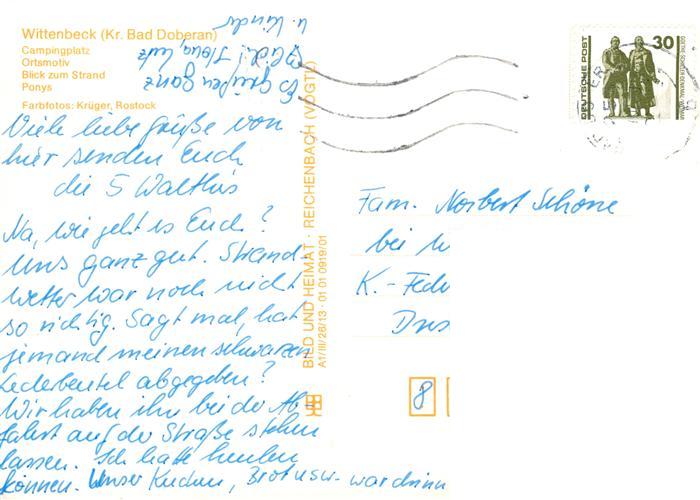 Wittenbeck (Kr. Bad Doberan)
Campingplatz
Ortsmotiv
Blick zum Strand
Ponys
Farbfotos: Krüger, Rostock
Viele liebe Grüße von
hier senden Euch
die 5 Walthis
Na, wie geht es Euch?
Uns ganz gut. Strand-
wetter war noch nicht
so richtig. Sagt mal, hat
jemand meinen schwarzen
Lederbeutel abgegeben?
Wir haben ihn bei der Ab-
fahrt auf der Straße stehen
lassen. Ich hätte heulen
können. Unser Kuchen, Brot usw. war drinn
Es grüßen ganz
lutz
u. Kinder
BILD UND HEIMAT · REICHENBACH (VOGTL)
A1/III/26/13 · 01 01 0919/01
DEUTSCHE POST
30
GOETHE-SCHILLER-DENKMAL · WEIMAR
Fam. Norbert Schöne
bei
K.-
8